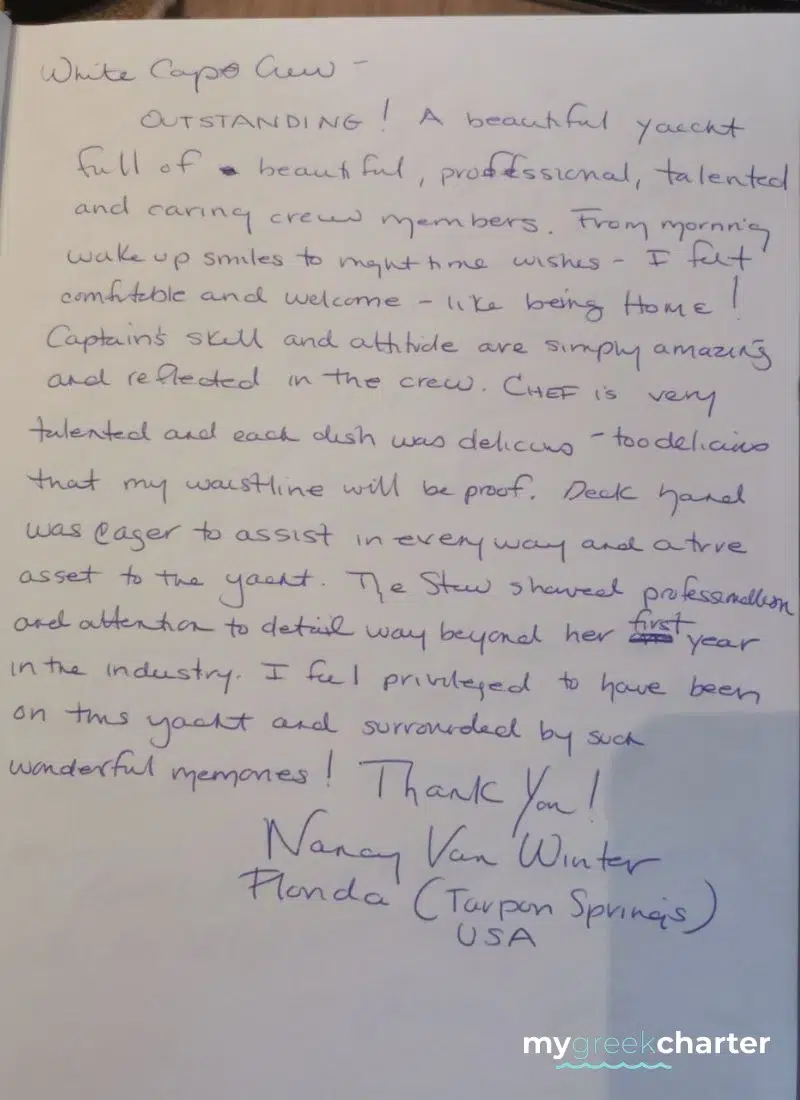 White Caps Crew -
OUTSTANDING! A beautiful yacht
full of beautiful, professional, talented
and caring crew members. From morning
wake up smiles to night time wishes - I felt
comfortable and welcome - like being Home!
Captain's skill and attitude are simply amazing
and reflected in the crew. CHEF is very
talented and each dish was delicious - too delicious
that my waistline will be proof. Deck hand
was eager to assist in every way and a true
asset to the yacht. The Stew showed professionalism
and attention to detail way beyond her first year
in the industry. I feel privileged to have been
on this yacht and surrounded by such
wonderful memories! Thank You!
Nancy Van Winter
Florida (Tarpon Springs)
USA
mygreekcharter